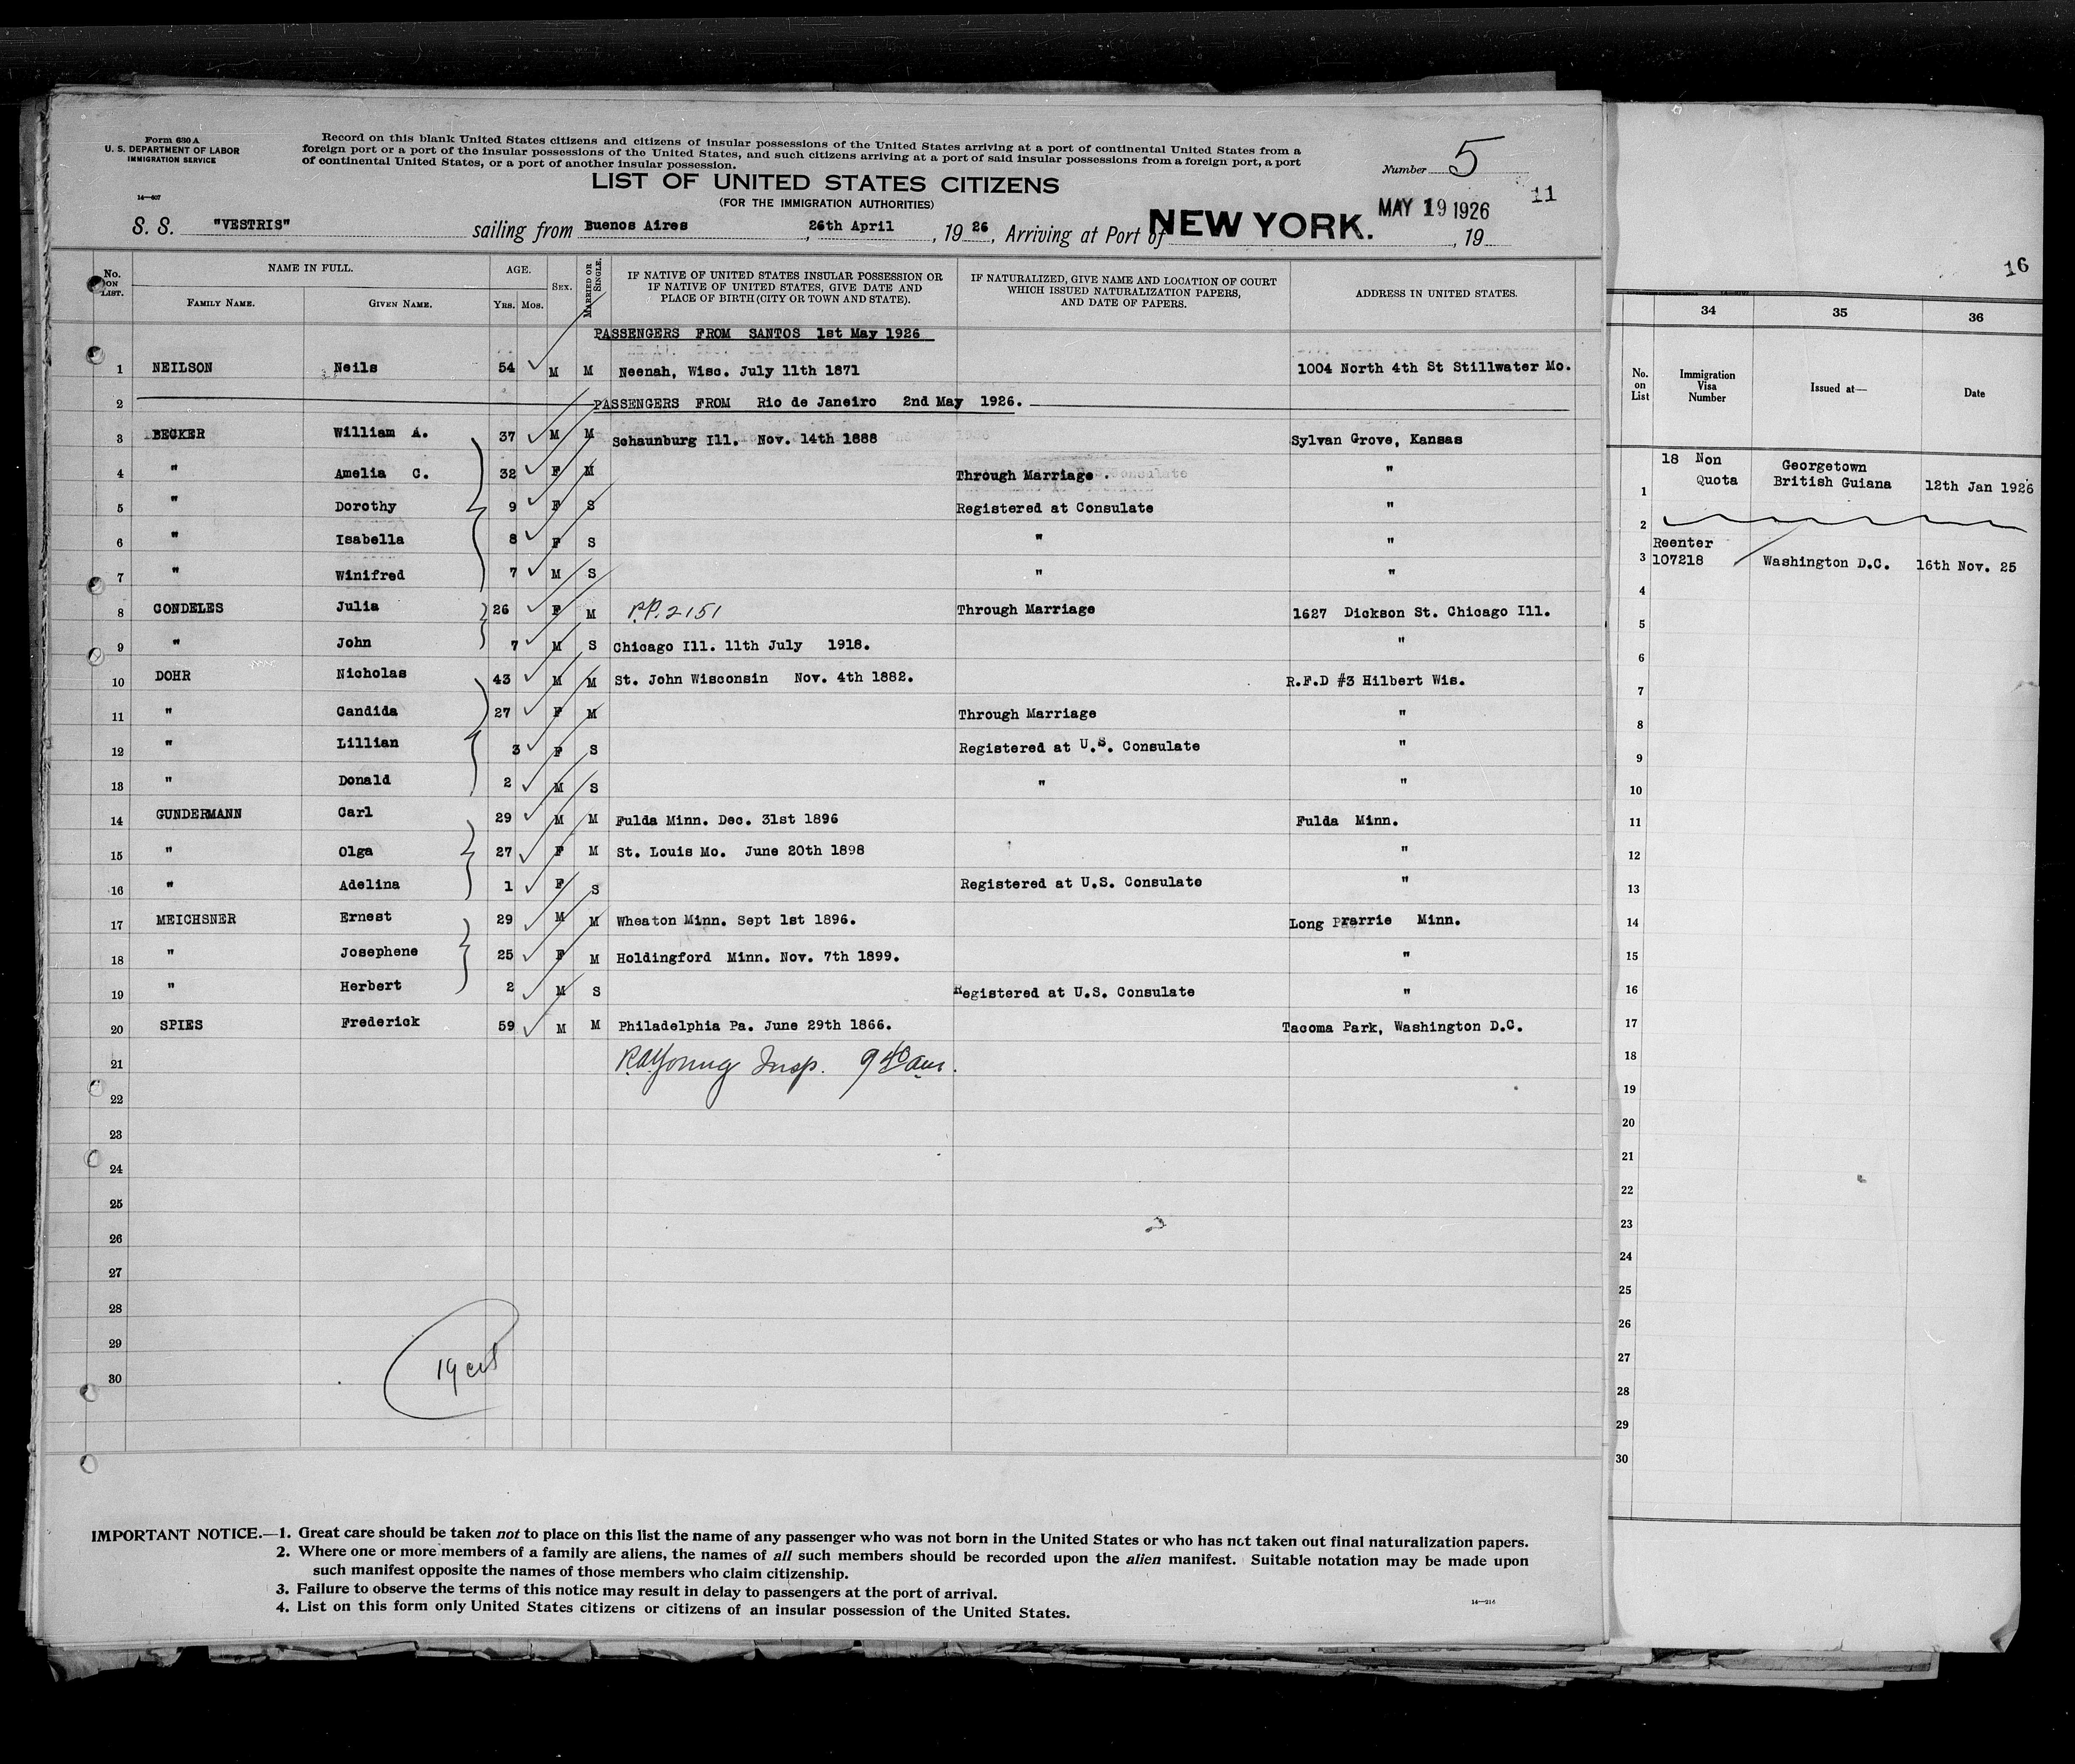 Form 630 A
U. S. DEPARTMENT OF LABOR
IMMIGRATION SERVICE
14—407
Record on this blank United States citizens and citizens of insular possessions of the United States arriving at a port of continental United States from a
foreign port or a port of the insular possessions of the United States, and such citizens arriving at a port of said insular possessions from a foreign port, a port
of continental United States, or a port of another insular possession.
Number 5
11
LIST OF UNITED STATES CITIZENS
(FOR THE IMMIGRATION AUTHORITIES)
S. S. "VESTRIS" sailing from Buenos Aires, 26th April, 1926, Arriving at Port of NEW YORK. MAY 19 1926, 19
No. ON LIST. NAME IN FULL. AGE. SEX. MARRIED OR SINGLE. IF NATIVE OF UNITED STATES INSULAR POSSESSION OR IF NATIVE OF UNITED STATES, GIVE DATE AND PLACE OF BIRTH (CITY OR TOWN AND STATE). IF NATURALIZED, GIVE NAME AND LOCATION OF COURT WHICH ISSUED NATURALIZATION PAPERS, AND DATE OF PAPERS. ADDRESS IN UNITED STATES.
FAMILY NAME. GIVEN NAME. YRS. MOS.
PASSENGERS FROM SANTOS 1st May 1926
1 NEILSON Neils 54 M M Neenah, Wisc. July 11th 1871 1004 North 4th St Stillwater Mo.
2 PASSENGERS FROM Rio de Janeiro 2nd May 1926.
3 BECKER William A. 37 M M Schaunburg Ill. Nov. 14th 1888 Sylvan Grove, Kansas
4 " Amelia C. 32 F M Through Marriage . "
5 " Dorothy 9 F S Registered at Consulate "
6 " Isabella 8 F S " "
7 " Winifred 7 M S " "
8 CONDELES Julia 26 F M P.P. 2151 Through Marriage 1627 Dickson St. Chicago Ill.
9 " John 7 M S Chicago Ill. 11th July 1918. "
10 DOHR Nicholas 43 M M St. John Wisconsin Nov. 4th 1882. R.F.D #3 Hilbert Wis.
11 " Candida 27 F M Through Marriage "
12 " Lillian 3 F S Registered at U.S. Consulate "
13 " Donald 2 M S " "
14 GUNDERMANN Carl 29 M M Fulda Minn. Dec. 31st 1896 Fulda Minn.
15 " Olga 27 F M St. Louis Mo. June 20th 1898 "
16 " Adelina 1 F S Registered at U.S. Consulate "
17 MEICHSNER Ernest 29 M M Wheaton Minn. Sept 1st 1896. Long Prarrie Minn.
18 " Josephene 25 F M Holdingford Minn. Nov. 7th 1899. "
19 " Herbert 2 M S Registered at U.S. Consulate "
20 SPIES Frederick 59 M M Philadelphia Pa. June 29th 1866. Tacoma Park, Washington D.C.
21 Young Insp. 9 40 am.
22
23
24
25
26
27
28
29
30
19
IMPORTANT NOTICE.—1. Great care should be taken not to place on this list the name of any passenger who was not born in the United States or who has not taken out final naturalization papers.
2. Where one or more members of a family are aliens, the names of all such members should be recorded upon the alien manifest. Suitable notation may be made upon
such manifest opposite the names of those members who claim citizenship.
3. Failure to observe the terms of this notice may result in delay to passengers at the port of arrival.
4. List on this form only United States citizens or citizens of an insular possession of the United States.
14—216
16
34 35 36
No. on List Immigration Visa Number Issued at— Date
1 18 Non Quota Georgetown British Guiana 12th Jan 1926
2
3 Reenter 107218 Washington D.C. 16th Nov. 25
4
5
6
7
8
9
10
11
12
13
14
15
16
17
18
19
20
21
22
23
24
25
26
27
28
29
30